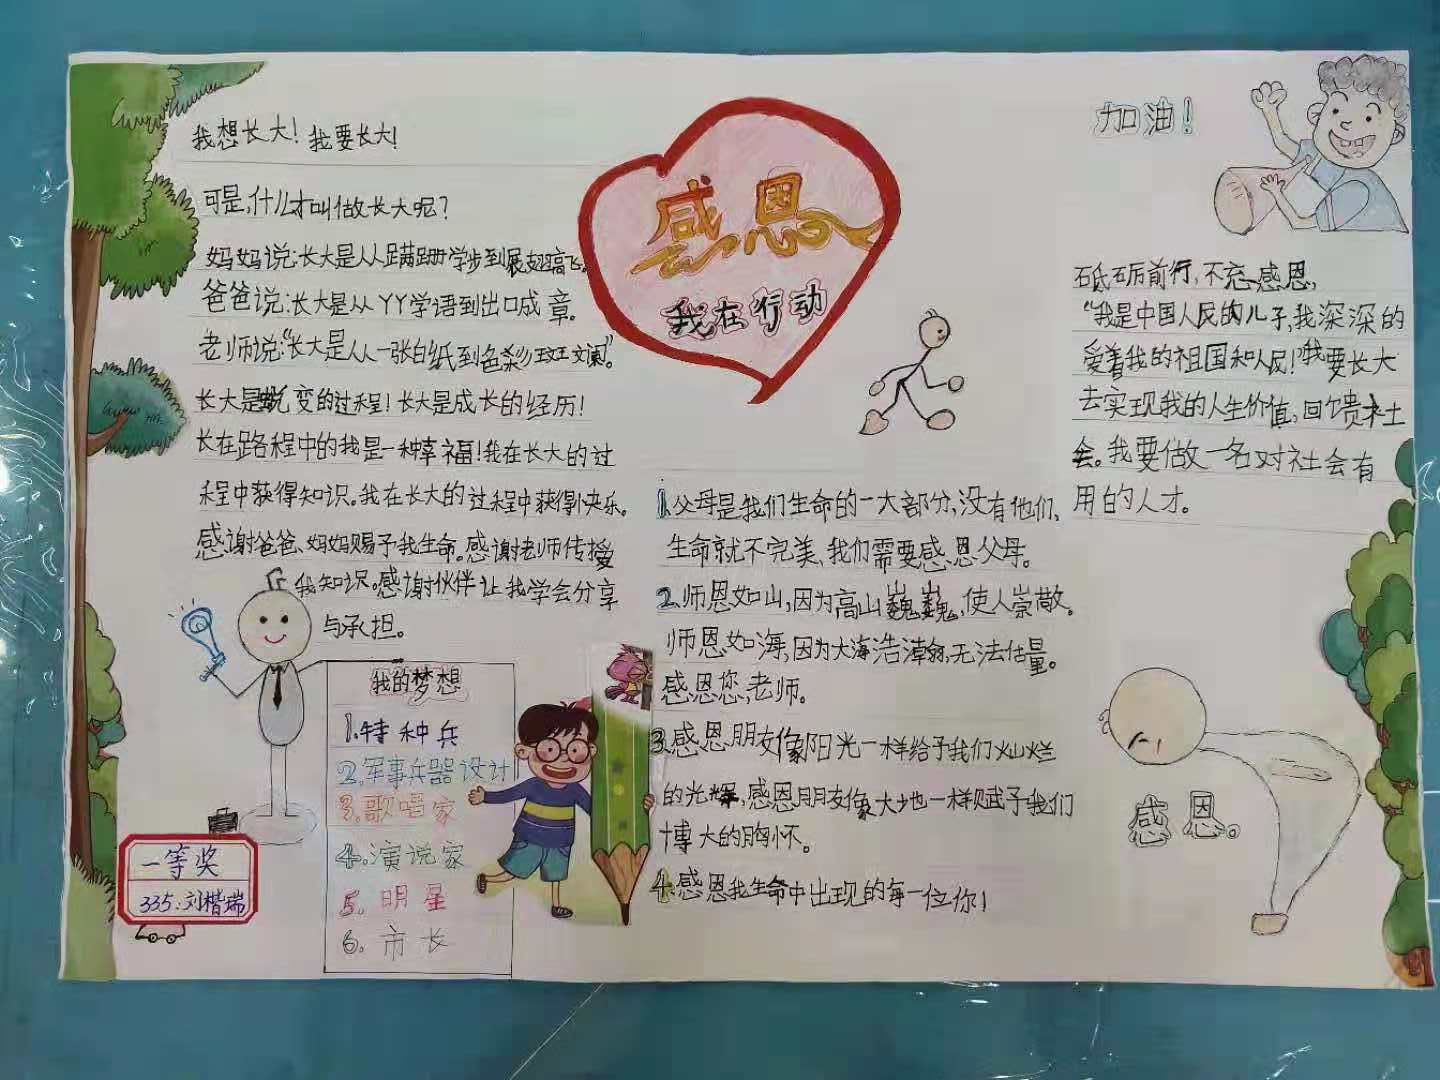 我想长大！我要长大！
可是，什么才叫做长大呢？
妈妈说：长大是从蹒跚学步到展翅高飞。
爸爸说：长大是从丫丫学语到出口成章。
老师说：“长大是从一张白纸到色彩斑斓”。
长大是蜕变的过程！长大是成长的经历！
长在路程中的我是一种幸福！我在长大的过
程中获得知识。我在长大的过程中获得快乐。
感谢爸爸、妈妈赐予我生命。感谢老师传授
我知识。感谢伙伴让我学会分享
与承担。
我的梦想
1.特种兵
2.军事兵器设计
3.歌唱家
4.演说家
5.明星
6.市长
一等奖
335：刘楷瑞
感恩
我在行动
1.父母是我们生命的一大部分，没有他们，
生命就不完美，我们需要感恩父母。
2.师恩如山，因为高山巍巍，使人崇敬。
师恩如海，因为大海浩瀚，无法估量。
感恩您，老师。
3.感恩朋友像阳光一样给予我们灿烂
的光辉，感恩朋友像大地一样赋予我们
博大的胸怀。
4.感恩我生命中出现的每一位你！
加油！
砥砺前行，不忘感恩，
“我是中国人民的儿子，我深深的
爱着我的祖国和人民！”我要长大
去实现我的人生价值，回馈社
会。我要做一名对社会有
用的人才。
感恩。